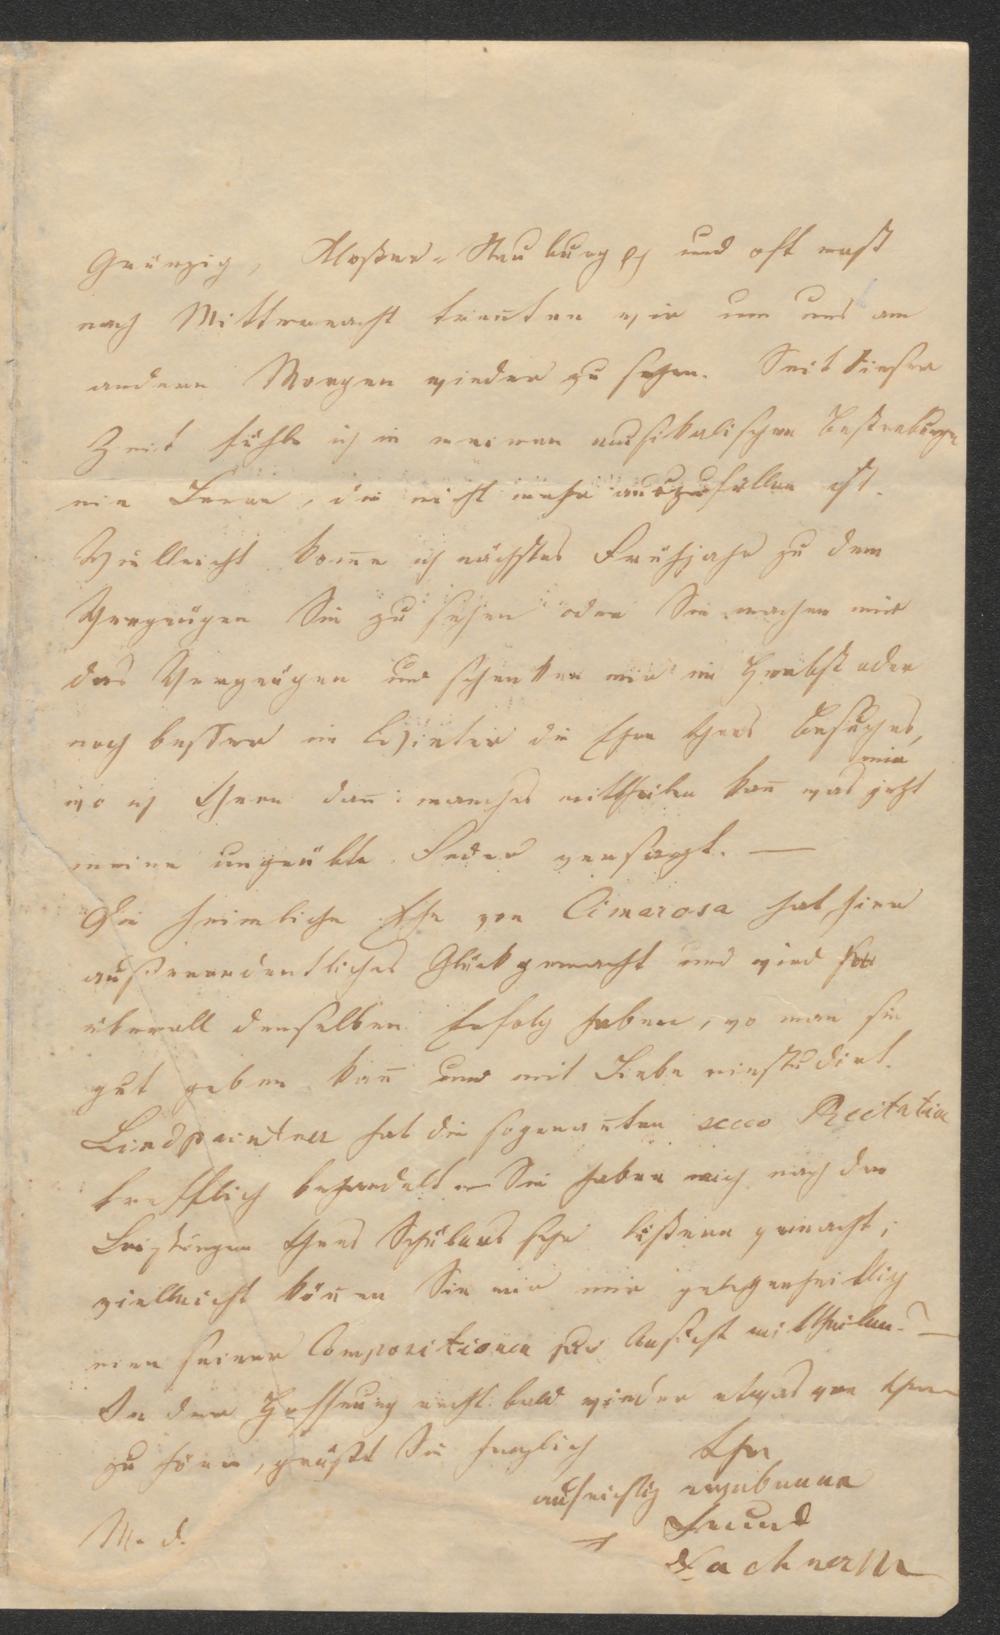 Grinzig, Kloster-Neuburg und oft erst
nach Mitternacht trenten wir um uns am
andern Morgen wieder zu sehen. Seit dieser
Zeit fühle ich in meinen musikalischen Bestrebungen
eine Leere, die nicht mehr auszufüllen ist.
Vielleicht kome ich nächstes Frühjahr zu dem
Vergnügen Sie zu sehen oder Sie machen mir
das Vergnügen und schenken mir im Herbst oder
noch besser im Winter die Ehre Ihres Besuches,
wo ich Ihnen dan manches mittheilen kan was mir jetzt
meine ungeübte Feder versagt. —
Die heimliche Ehe von Cimarosa hat hier
außerordentliches Glück gemacht und wird
überall denselben Erfolg haben, wo man sie
gut geben kan und mit Liebe einstudirt.
Lindpaintner hat die sogenanten secco Recitative
trefflich behandelt — Sie haben mich nach den
Leistungen Ihres Schülers sehr lüstern gemacht;
vielleicht könen Sie mir gelegenheitlich
eine seiner Compositionen zur Ansicht mittheilen? —
In der Hoffnung recht bald wieder etwas von Ihnen
zu hören, grüßt Sie herzlich
Ihr
aufrichtig ergebener
Freund
Lachner